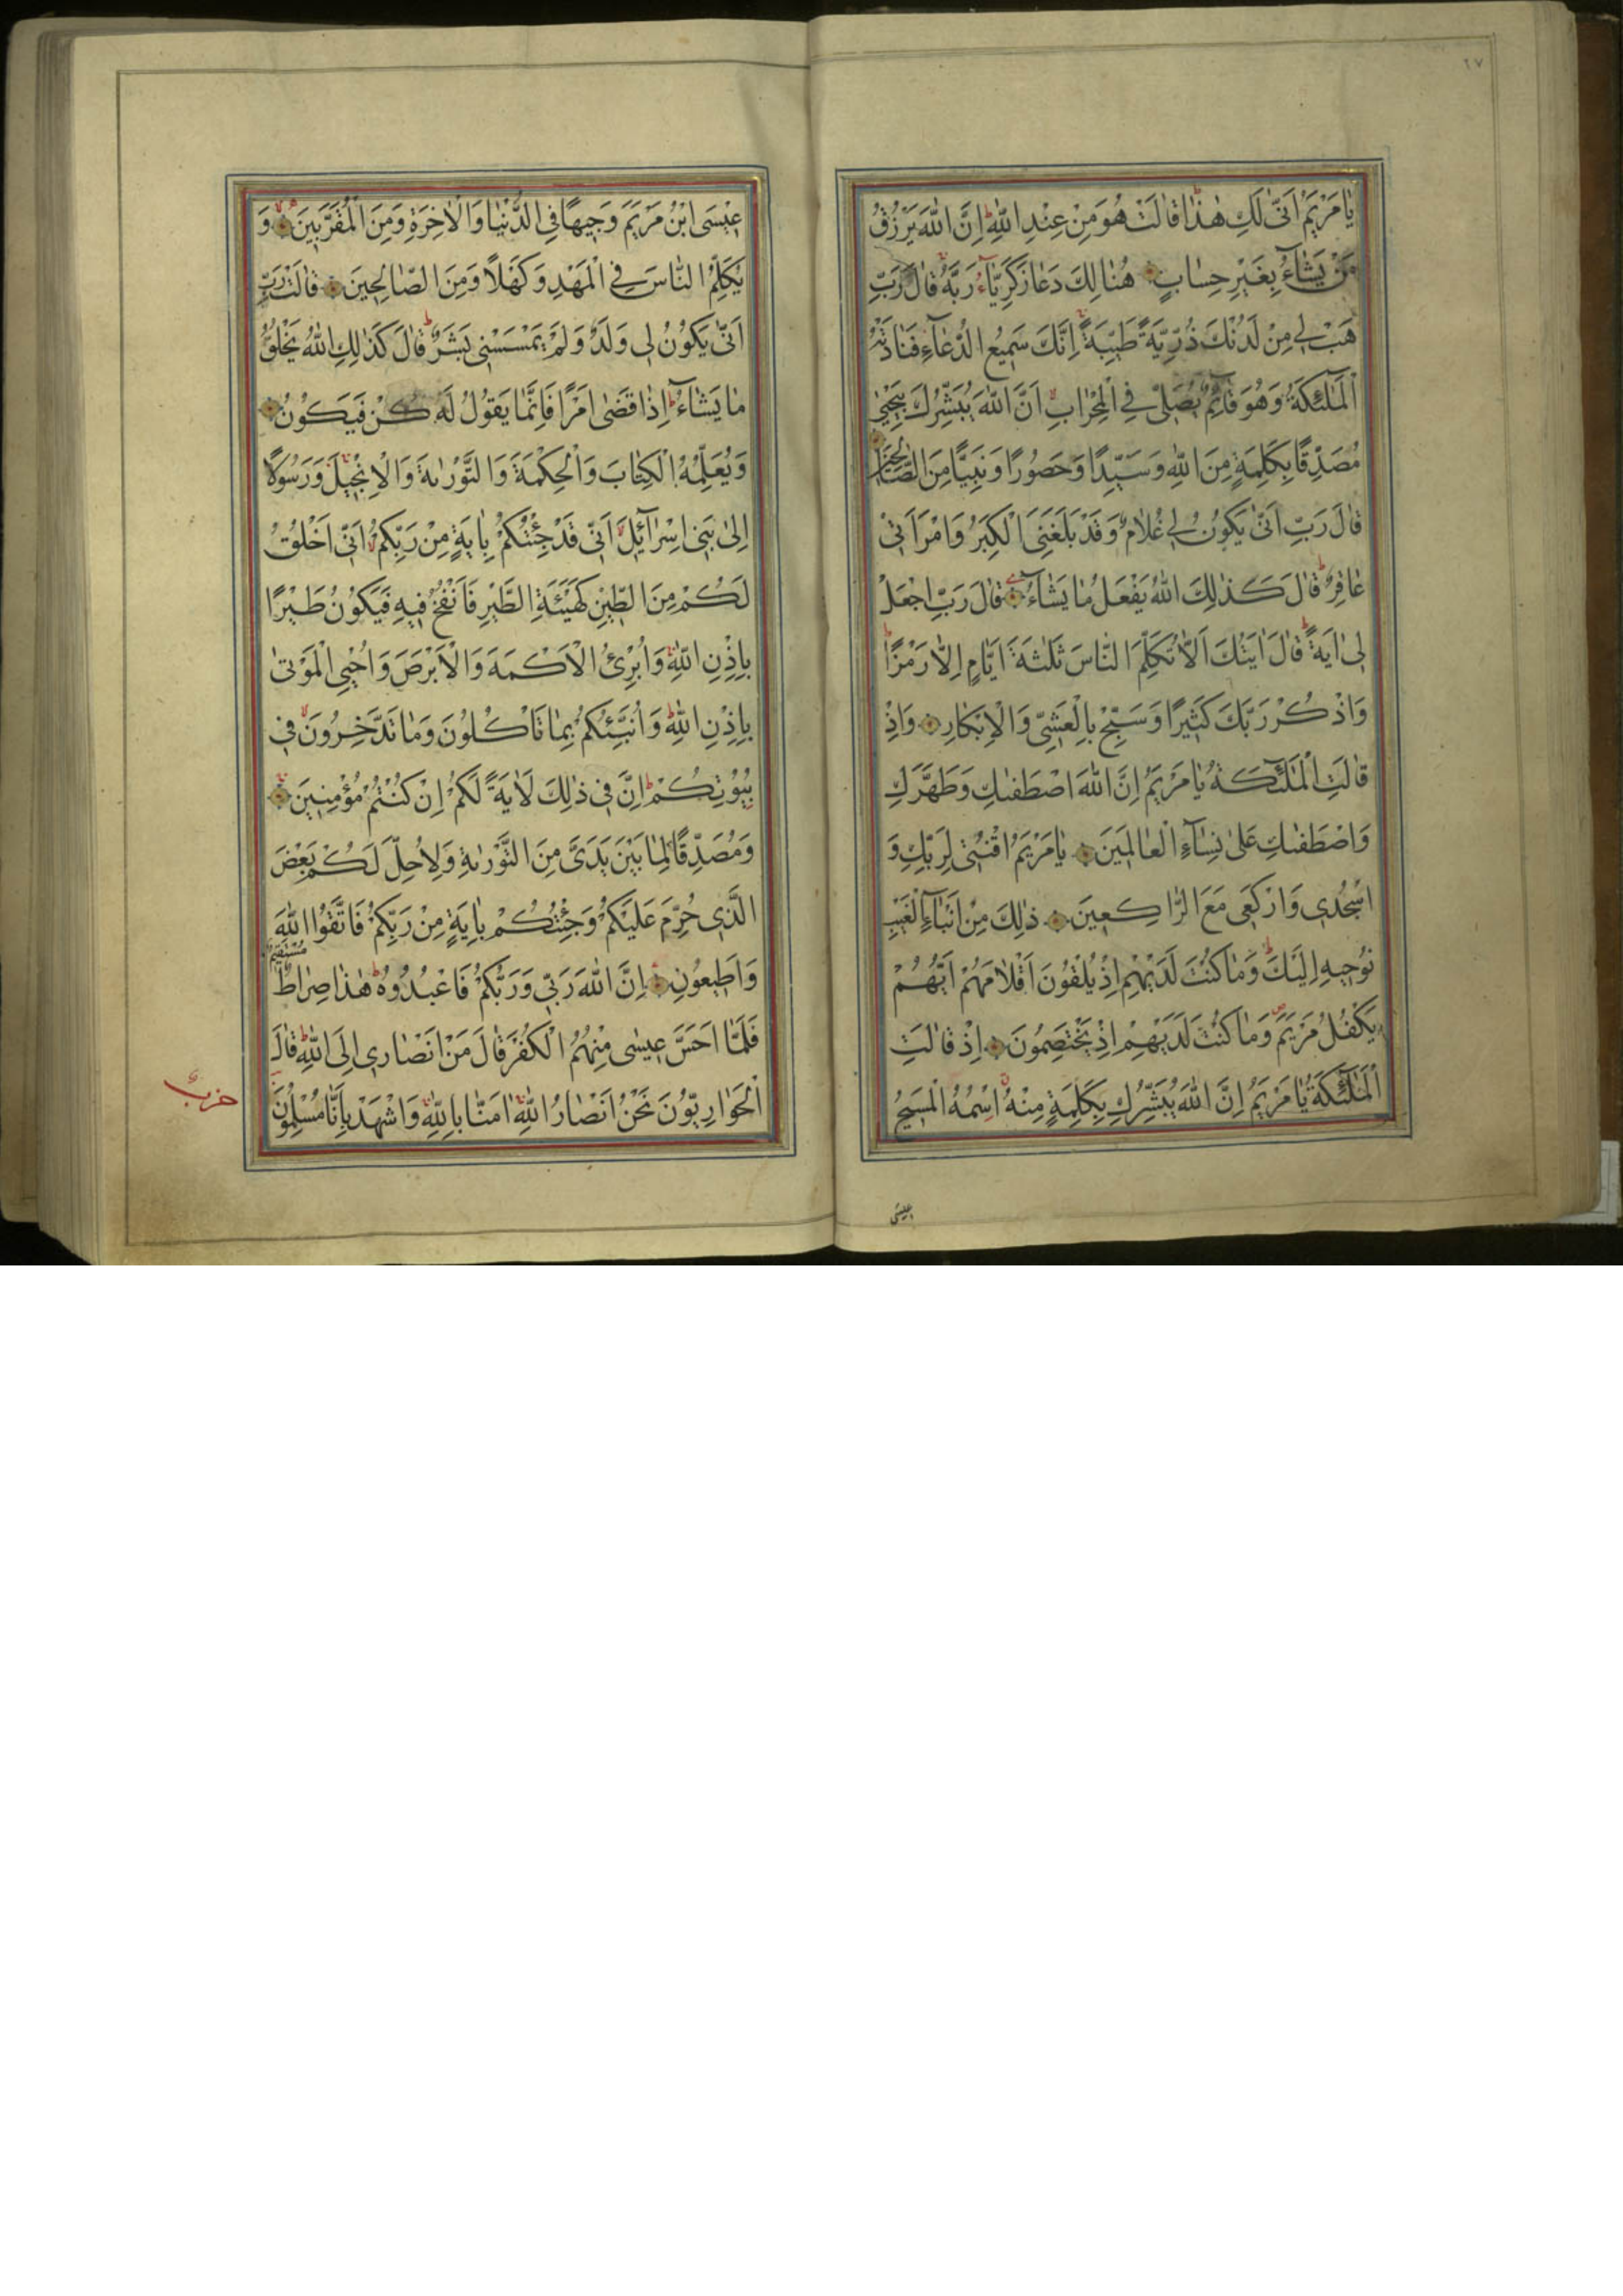 ٢٧
يَا مَرْيَمُ اَنّٰى لَكِ هٰذَا قَالَتْ هُوَ مِنْ عِنْدِ اللّٰهِ ط اِنَّ اللّٰهَ يَرْزُقُ
مَنْ يَشَآءُ بِغَيْرِ حِسَابٍ هُنَالِكَ دَعَا زَكَرِيَّآءُ رَبَّهُ قَالَ رَبِّ
هَبْ لِي مِنْ لَدُنْكَ ذُرِّيَّةً طَيِّبَةً اِنَّكَ سَمِيعُ الدُّعَآءِ فَنَادَتْهُ
الْمَلٰٓئِكَةُ وَهُوَ قَآئِمٌ يُصَلِّي فِي الْمِحْرَابِ لا اَنَّ اللّٰهَ يُبَشِّرُكَ بِيَحْيٰى
مُصَدِّقًا بِكَلِمَةٍ مِنَ اللّٰهِ وَسَيِّدًا وَحَصُورًا وَنَبِيًّا مِنَ الصَّالِحِينَ
قَالَ رَبِّ اَنّٰى يَكُونُ لِي غُلَامٌ وَقَدْ بَلَغَنِيَ الْكِبَرُ وَامْرَاَتِي
عَاقِرٌ ط قَالَ كَذٰلِكَ اللّٰهُ يَفْعَلُ مَا يَشَآءُ قَالَ رَبِّ اجْعَلْ
لِي اٰيَةً ط قَالَ اٰيَتُكَ اَلَّا تُكَلِّمَ النَّاسَ ثَلٰثَةَ اَيَّامٍ اِلَّا رَمْزًا ط
وَاذْكُرْ رَبَّكَ كَثِيرًا وَسَبِّحْ بِالْعَشِيِّ وَالْاِبْكَارِ وَاِذْ
قَالَتِ الْمَلٰٓئِكَةُ يَا مَرْيَمُ اِنَّ اللّٰهَ اصْطَفٰىكِ وَطَهَّرَكِ
وَاصْطَفٰىكِ عَلٰى نِسَآءِ الْعَالَمِينَ يَا مَرْيَمُ اقْنُتِي لِرَبِّكِ وَ
اسْجُدِي وَارْكَعِي مَعَ الرَّاكِعِينَ ذٰلِكَ مِنْ اَنْبَآءِ الْغَيْبِ
نُوحِيهِ اِلَيْكَ ط وَمَا كُنْتَ لَدَيْهِمْ اِذْ يُلْقُونَ اَقْلَامَهُمْ اَيُّهُمْ
يَكْفُلُ مَرْيَمَ ص وَمَا كُنْتَ لَدَيْهِمْ اِذْ يَخْتَصِمُونَ اِذْ قَالَتِ
الْمَلٰٓئِكَةُ يَا مَرْيَمُ اِنَّ اللّٰهَ يُبَشِّرُكِ بِكَلِمَةٍ مِنْهُ اسْمُهُ الْمَسِيحُ
عِيسَى
عِيسَى ابْنُ مَرْيَمَ وَجِيهًا فِي الدُّنْيَا وَالْاٰخِرَةِ وَمِنَ الْمُقَرَّبِينَ وَ
يُكَلِّمُ النَّاسَ فِي الْمَهْدِ وَكَهْلًا وَمِنَ الصَّالِحِينَ قَالَتْ رَبِّ
اَنّٰى يَكُونُ لِي وَلَدٌ وَلَمْ يَمْسَسْنِي بَشَرٌ ط قَالَ كَذٰلِكِ اللّٰهُ يَخْلُقُ
مَا يَشَآءُ ط اِذَا قَضٰى اَمْرًا فَاِنَّمَا يَقُولُ لَهُ كُنْ فَيَكُونُ
وَيُعَلِّمُهُ الْكِتَابَ وَالْحِكْمَةَ وَالتَّوْرٰىةَ وَالْاِنْجِيلَ وَرَسُولًا
اِلٰى بَنِي اِسْرَآئِيلَ اَنِّي قَدْ جِئْتُكُمْ بِاٰيَةٍ مِنْ رَبِّكُمْ اَنِّي اَخْلُقُ
لَكُمْ مِنَ الطِّينِ كَهَيْئَةِ الطَّيْرِ فَاَنْفُخُ فِيهِ فَيَكُونُ طَيْرًا
بِاِذْنِ اللّٰهِ وَاُبْرِئُ الْاَكْمَهَ وَالْاَبْرَصَ وَاُحْيِي الْمَوْتٰى
بِاِذْنِ اللّٰهِ وَاُنَبِّئُكُمْ بِمَا تَاْكُلُونَ وَمَا تَدَّخِرُونَ فِي
بُيُوتِكُمْ ط اِنَّ فِي ذٰلِكَ لَاٰيَةً لَكُمْ اِنْ كُنْتُمْ مُؤْمِنِينَ
وَمُصَدِّقًا لِمَا بَيْنَ يَدَيَّ مِنَ التَّوْرٰىةِ وَلِاُحِلَّ لَكُمْ بَعْضَ
الَّذِي حُرِّمَ عَلَيْكُمْ وَجِئْتُكُمْ بِاٰيَةٍ مِنْ رَبِّكُمْ فَاتَّقُوا اللّٰهَ
وَاَطِيعُونِ اِنَّ اللّٰهَ رَبِّي وَرَبُّكُمْ فَاعْبُدُوهُ ط هٰذَا صِرَاطٌ مُسْتَقِيمٌ
فَلَمَّا اَحَسَّ عِيسٰى مِنْهُمُ الْكُفْرَ قَالَ مَنْ اَنْصَارِي اِلَى اللّٰهِ ط قَالَ
الْحَوَارِيُّونَ نَحْنُ اَنْصَارُ اللّٰهِ اٰمَنَّا بِاللّٰهِ وَاشْهَدْ بِاَنَّا مُسْلِمُونَ
حزب